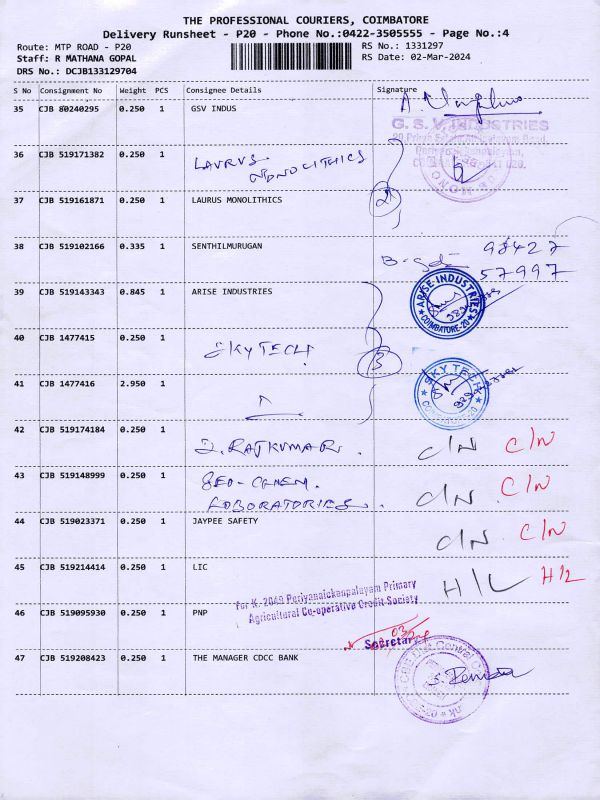 THE PROFESSIONAL COURIERS, COIMBATORE
Delivery Runsheet - P20 - Phone No.:0422-3505555 - Page No.:4
Route: MTP ROAD - P20 RS No.: 1331297
Staff: R MATHANA GOPAL RS Date: 02-Mar-2024
DRS No.: DCJB133129704
S No Consignment No Weight PCS Consignee Details Signature
35 CJB 80240295 0.250 1 GSV INDUS
G. S. V. INDUSTRIES
36 CJB 519171382 0.250 1 LAURUS MONOLITHICS
37 CJB 519161871 0.250 1 LAURUS MONOLITHICS 2
38 CJB 519102166 0.335 1 SENTHILMURUGAN 98427
57997
39 CJB 519143343 0.845 1 ARISE INDUSTRIES
ARISE INDUSTRIES COIMBATORE-20
40 CJB 1477415 0.250 1 SKYTECH 3
41 CJB 1477416 2.950 1
SKY TECH
42 CJB 519174184 0.250 1 J. RAJKUMAR. C/N C/N
43 CJB 519148999 0.250 1 GEO-CHEM. LOBORATORIES. C/N C/N
44 CJB 519023371 0.250 1 JAYPEE SAFETY C/N C/N
45 CJB 519214414 0.250 1 LIC H/L H/L
For K. 2049 Periyanaickenpalayam Primary
Agricultural Co-operative Credit Society
46 CJB 519095930 0.250 1 PNP
Secretary
47 CJB 519208423 0.250 1 THE MANAGER CDCC BANK